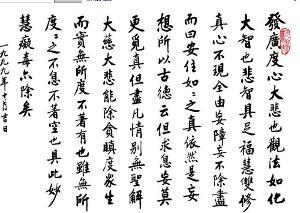 發廣度心大悲也觀法如化
大智也悲智具足福慧雙修
真心不現全由妄障妄不除盡
而曰安住如々之真依然是妄
想所以古德云但求息妄莫
更覓真但盡凡情別無聖解
大慈大悲能除貪瞋度眾生
而實無所度不著有也雖無所
度々之不息不著空也具此妙
慧癡毒亦除矣
一九九九年十月吉日